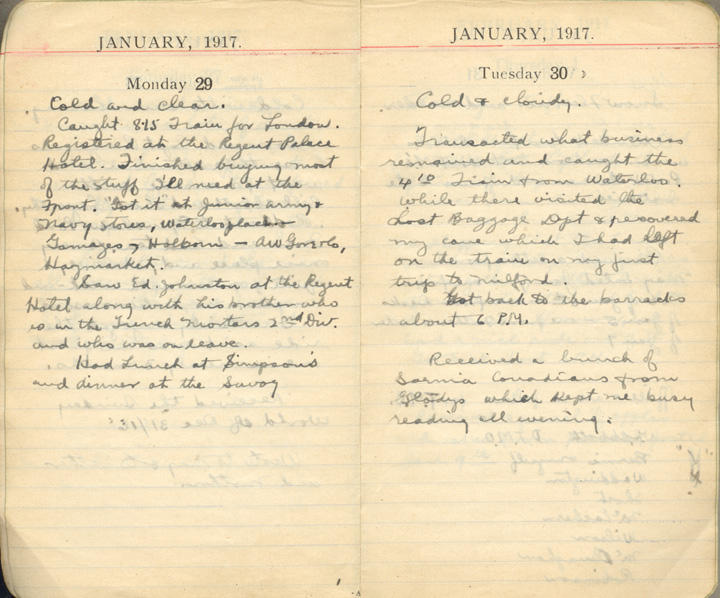 JANUARY, 1917.
Monday 29
Cold and clear.
Caught 8.15 Train for London.
Registered at the Regent Palace
Hotel. Finished buying most
of the stuff I'll need at the
Front. Got it at Junior army &
Navy stores, Waterloo place &
Gamages, Holborn —
Haymarket.
Saw Ed. Johnston at the Regent
Hotel along with his brother who
is in the Trench Mortars 2nd Div.
and who was on leave.
Had Lunch at Simpson's
and dinner at the Savoy
JANUARY, 1917.
Tuesday 30
Cold & cloudy.
Transacted what business
remained and caught the
4 10 Train from Waterloo.
While there visited the
Lost Baggage Dpt & recovered
my cane which I had left
on the train on my first
trip to Milford.
Got back to the barracks
about 6 P.M.
Received a bunch of
Sarnia Canadians from
Gladys which kept me busy
reading all evening.